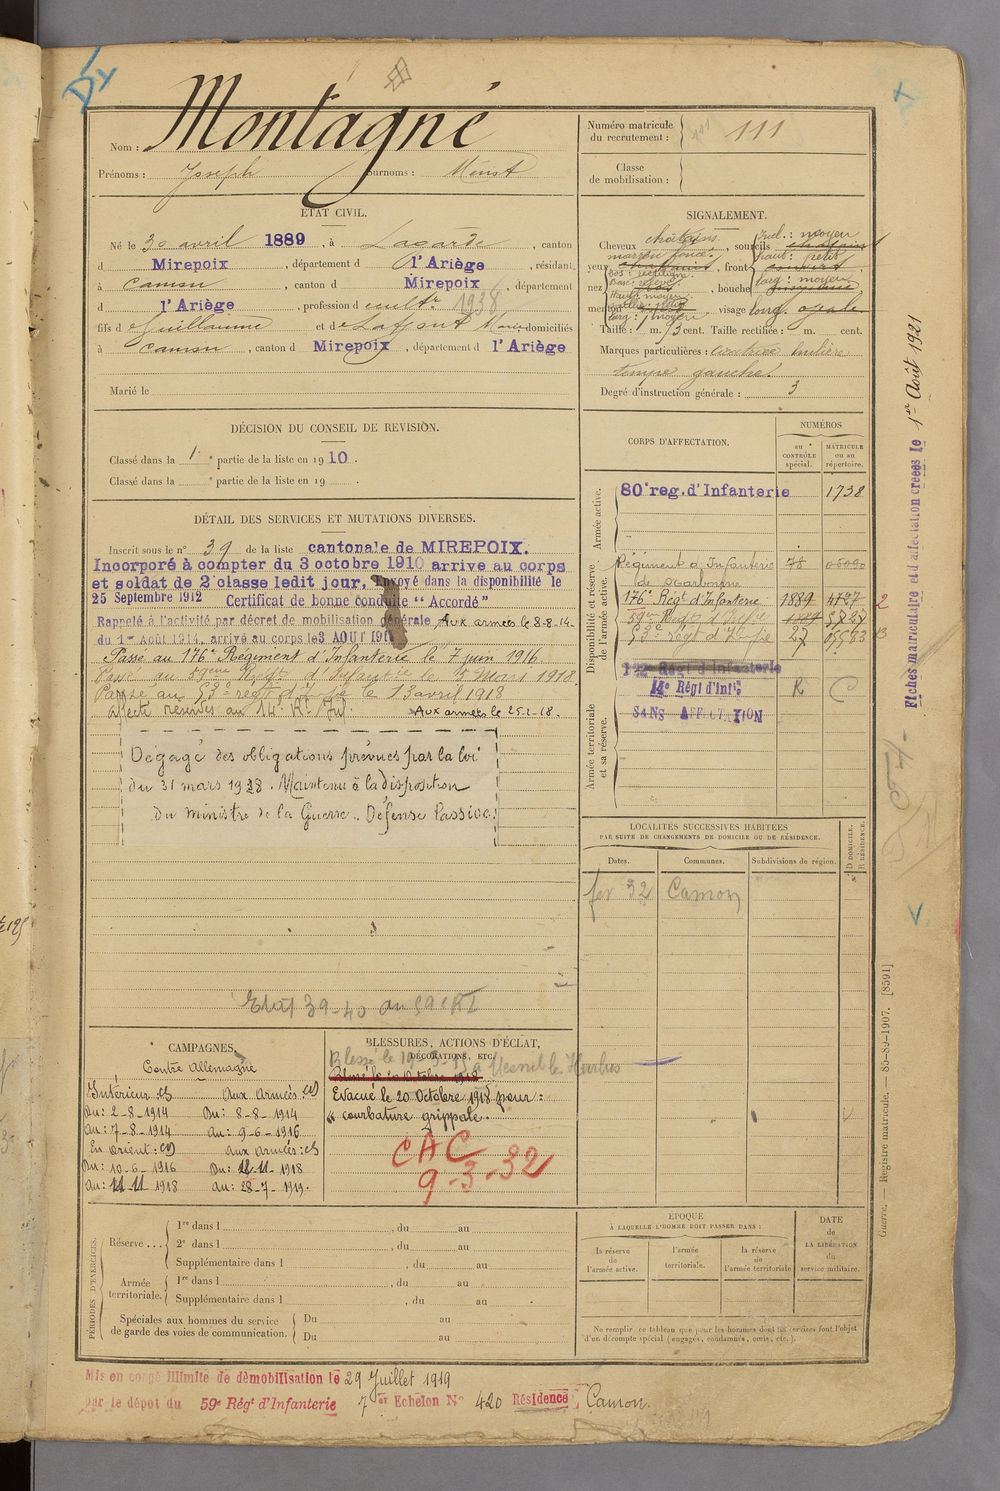 Montagné
Nom :
Prénoms : Joseph Surnoms :
Numéro matricule du recrutement : 111
Classe de mobilisation :
ÉTAT CIVIL.
Né le 30 avril 1889, à Lagarde, canton
d Mirepoix, département d l'Ariège, résidant
à Camon, canton d Mirepoix, département
d l'Ariège, profession d cultr 1938
fils d Guillaume et de Laffont Marie domiciliés
à Camon, canton d Mirepoix, département d l'Ariège
Marié le
SIGNALEMENT.
Cheveux châtains, sourcils
Incl. : moyen
marron foncé.
haut : petit
yeux, front
Dos : rectiligne
larg : moyen
Base : relevé
nez, bouche
Haut : moyen
menton, visage long. ovale
larg : moyen
Taille : 1 m. 73 cent. Taille rectifiée : m. cent.
Marques particulières : cicatrice
tempe gauche.
Degré d'instruction générale : 3
DÉCISION DU CONSEIL DE REVISION.
Classé dans la 1e partie de la liste en 1910.
Classé dans la e partie de la liste en 19 .
DÉTAIL DES SERVICES ET MUTATIONS DIVERSES.
Inscrit sous le n° 39 de la liste cantonale de MIREPOIX.
Incorporé à compter du 3 octobre 1910 arrive au corps
et soldat de 2e classe ledit jour, Envoyé dans la disponibilité le
25 Septembre 1912 Certificat de bonne conduite "Accordé"
Rappelé à l'activité par décret de mobilisation générale Aux armées le 8-8-14
du 1er Août 1914, arrivé au corps le 3 AOUT 1914
Passé au 176e Régiment d'Infanterie le 7 juin 1916
Passé au 59ème Régt d'Infanterie le 5 Mars 1918.
Passé au 53e regt d'Inf ie le 13 avril 1918
Affecté réserves au 14e R. Inf. Aux armées le 25-2-18.
Dégagé des obligations prévues par la loi
du 31 mars 1928. Maintenu à la disposition
du ministre de la Guerre. Défense Passive.
Etat 39-40 au
CORPS D'AFFECTATION.
NUMÉROS
au CONTRÔLE spécial.
MATRICULE ou au répertoire.
Armée active.
80e reg. d'Infanterie 1738
Disponibilité et réserve de l'armée active.
Régiment d'Infanterie 78
de Narbonne
176e Régt d'Infanterie 1889 4727 2
59ème Regt d'Infie 1889 5827
53e regt d'Inf ie 27 05573 B
Armée territoriale et sa réserve.
Régt d'Infanterie
14e Régt d'Infie R C
SANS AFFECTATION
LOCALITÉS SUCCESSIVES HABITÉES
PAR SUITE DE CHANGEMENTS DE DOMICILE OU DE RÉSIDENCE.
Dates. Communes. Subdivisions de région. D DOMICILE. R RÉSIDENCE.
fev 32 Camon
CAMPAGNES.
Contre Allemagne
Intérieur : CS Aux Armées : CD
Du : 2-8-1914 Du : 8-8-1914
Au : 7-8-1914 Au : 9-6-1916
En Orient : CD Aux Armées : CS
Du : 10-6-1916 Du : 12-11-1918
Au : 11-11-1918 Au : 28-7-1919.
BLESSURES, ACTIONS D'ÉCLAT,
DÉCORATIONS, ETC.
Blessé le 19-3-15 à Mesnil les Hurlus
Blessé le 20 Octobre 1918
Evacué le 20 Octobre 1918 pour :
"courbature grippale".
CAC
9-3-32
PÉRIODES D'EXERCICES.
Réserve ... 1re dans l , du au
2e dans l , du au
Supplémentaire dans l , du au
Armée territoriale. 1re dans l , du au
Supplémentaire dans l , du au
Spéciales aux hommes du service de garde des voies de communication. Du au
Du au
ÉPOQUE
À LAQUELLE L'HOMME DOIT PASSER DANS :
la réserve de l'armée active.
l'armée territoriale.
la réserve de l'armée territoriale
DATE de LA LIBÉRATION du service militaire.
Ne remplir ce tableau que pour les hommes dont les services font l'objet
d'un décompte spécial (engagés, condamnés, omis, etc.).
Mis en congé illimité de démobilisation le 29 Juillet 1919
par le dépôt du 59e Régt d'Infanterie 7er Echelon N° 420 Résidence Camon.
Fiches matriculaire et d'affectation créées le 1er Août 1921
Guerre. — Registre matricule. — 85-89-1907. [8591]